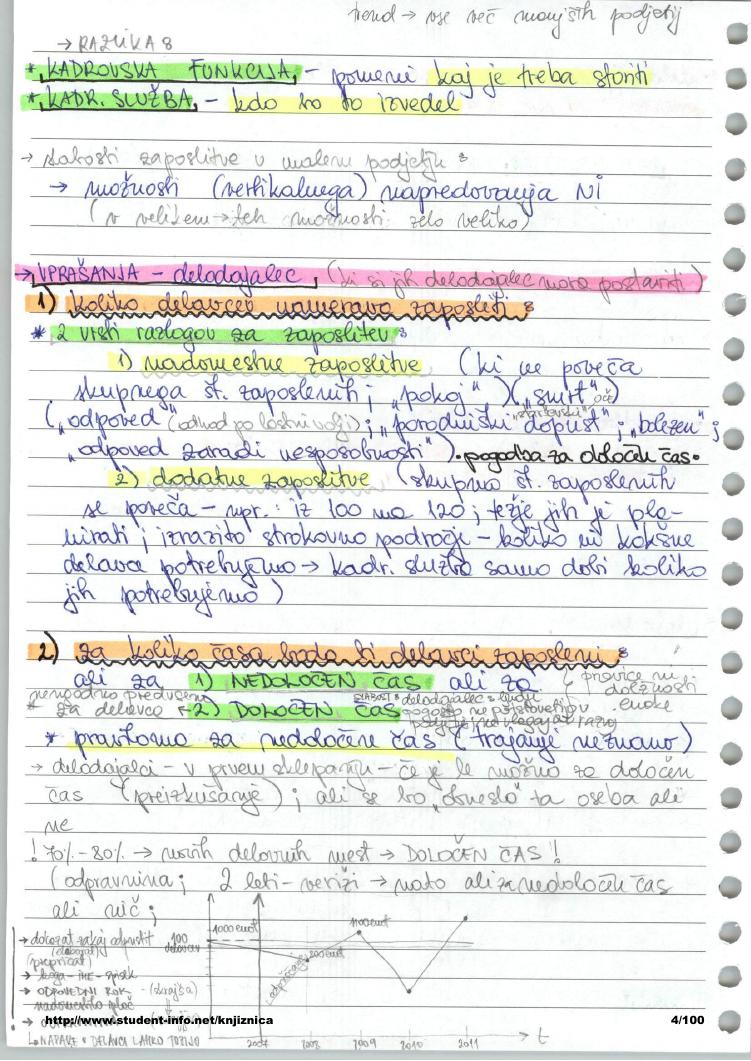 trend → vse več manjših podjetij
→ RAZLIKA:
* KADROVSKA FUNKCIJA, – pomeni kaj je treba storiti
* KADR. SLUŽBA, – kdo bo to izvedel
→ slabosti zaposlitve v malem podjetju:
→ možnosti (vertikalnega) napredovanja NI
(v velikem → teh možnosti zelo veliko)
→ VPRAŠANJA – delodajalec, (ki si jih delodajalec mora postaviti)
1) koliko delavcev namerava zaposliti:
* 2 vrsti razlogov za zaposlitev:
1) nadomestne zaposlitve (ki ne poveča
skupnega št. zaposlenih; „pokoj“) („smrt“)
(„odpoved“ (odhod po lastni volji); „porodniški dopust“; „bolezen“;
„odpoved zaradi nesposobnosti“). • pogodba za določen čas •
2) dodatne zaposlitve (skupno št. zaposlenih
se poveča – npr.: iz 100 na 120; težje jih je pla-
nirati; izrazito strokovno področje – koliko in kakšne
delavce potrebujemo → kadr. služba samo dobi koliko
jih potrebujemo)
2) za koliko časa bodo ti delavci zaposleni:
ali za 1) NEDOLOČEN ČAS ali za
(pravice in dolžnosti enake
* za delavce 2) DOLOČEN ČAS
SLABOST: delodajalec
* praviloma za nedoločen čas (trajanje neznano)
→ delodajalci – v prvem sklepanju – če je le možno za določen
čas (preizkušanje); ali se bo „obnesla“ ta oseba ali
ne
! 70% - 80% → novih delovnih mest → DOLOČEN ČAS!
(odpravnina; 2 leti – verižni → nato ali za nedoločen čas
ali nič;
→ dokazat zakaj odpustit
→ ODPOVEDNI ROK
100 delavcev
1000 enot
t
2007 2008 2009 2010 2011
http://www.student-info.net/knjiznica
4/100